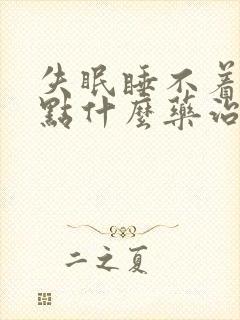 失眠睡不着
點什麼藥治
二之夏